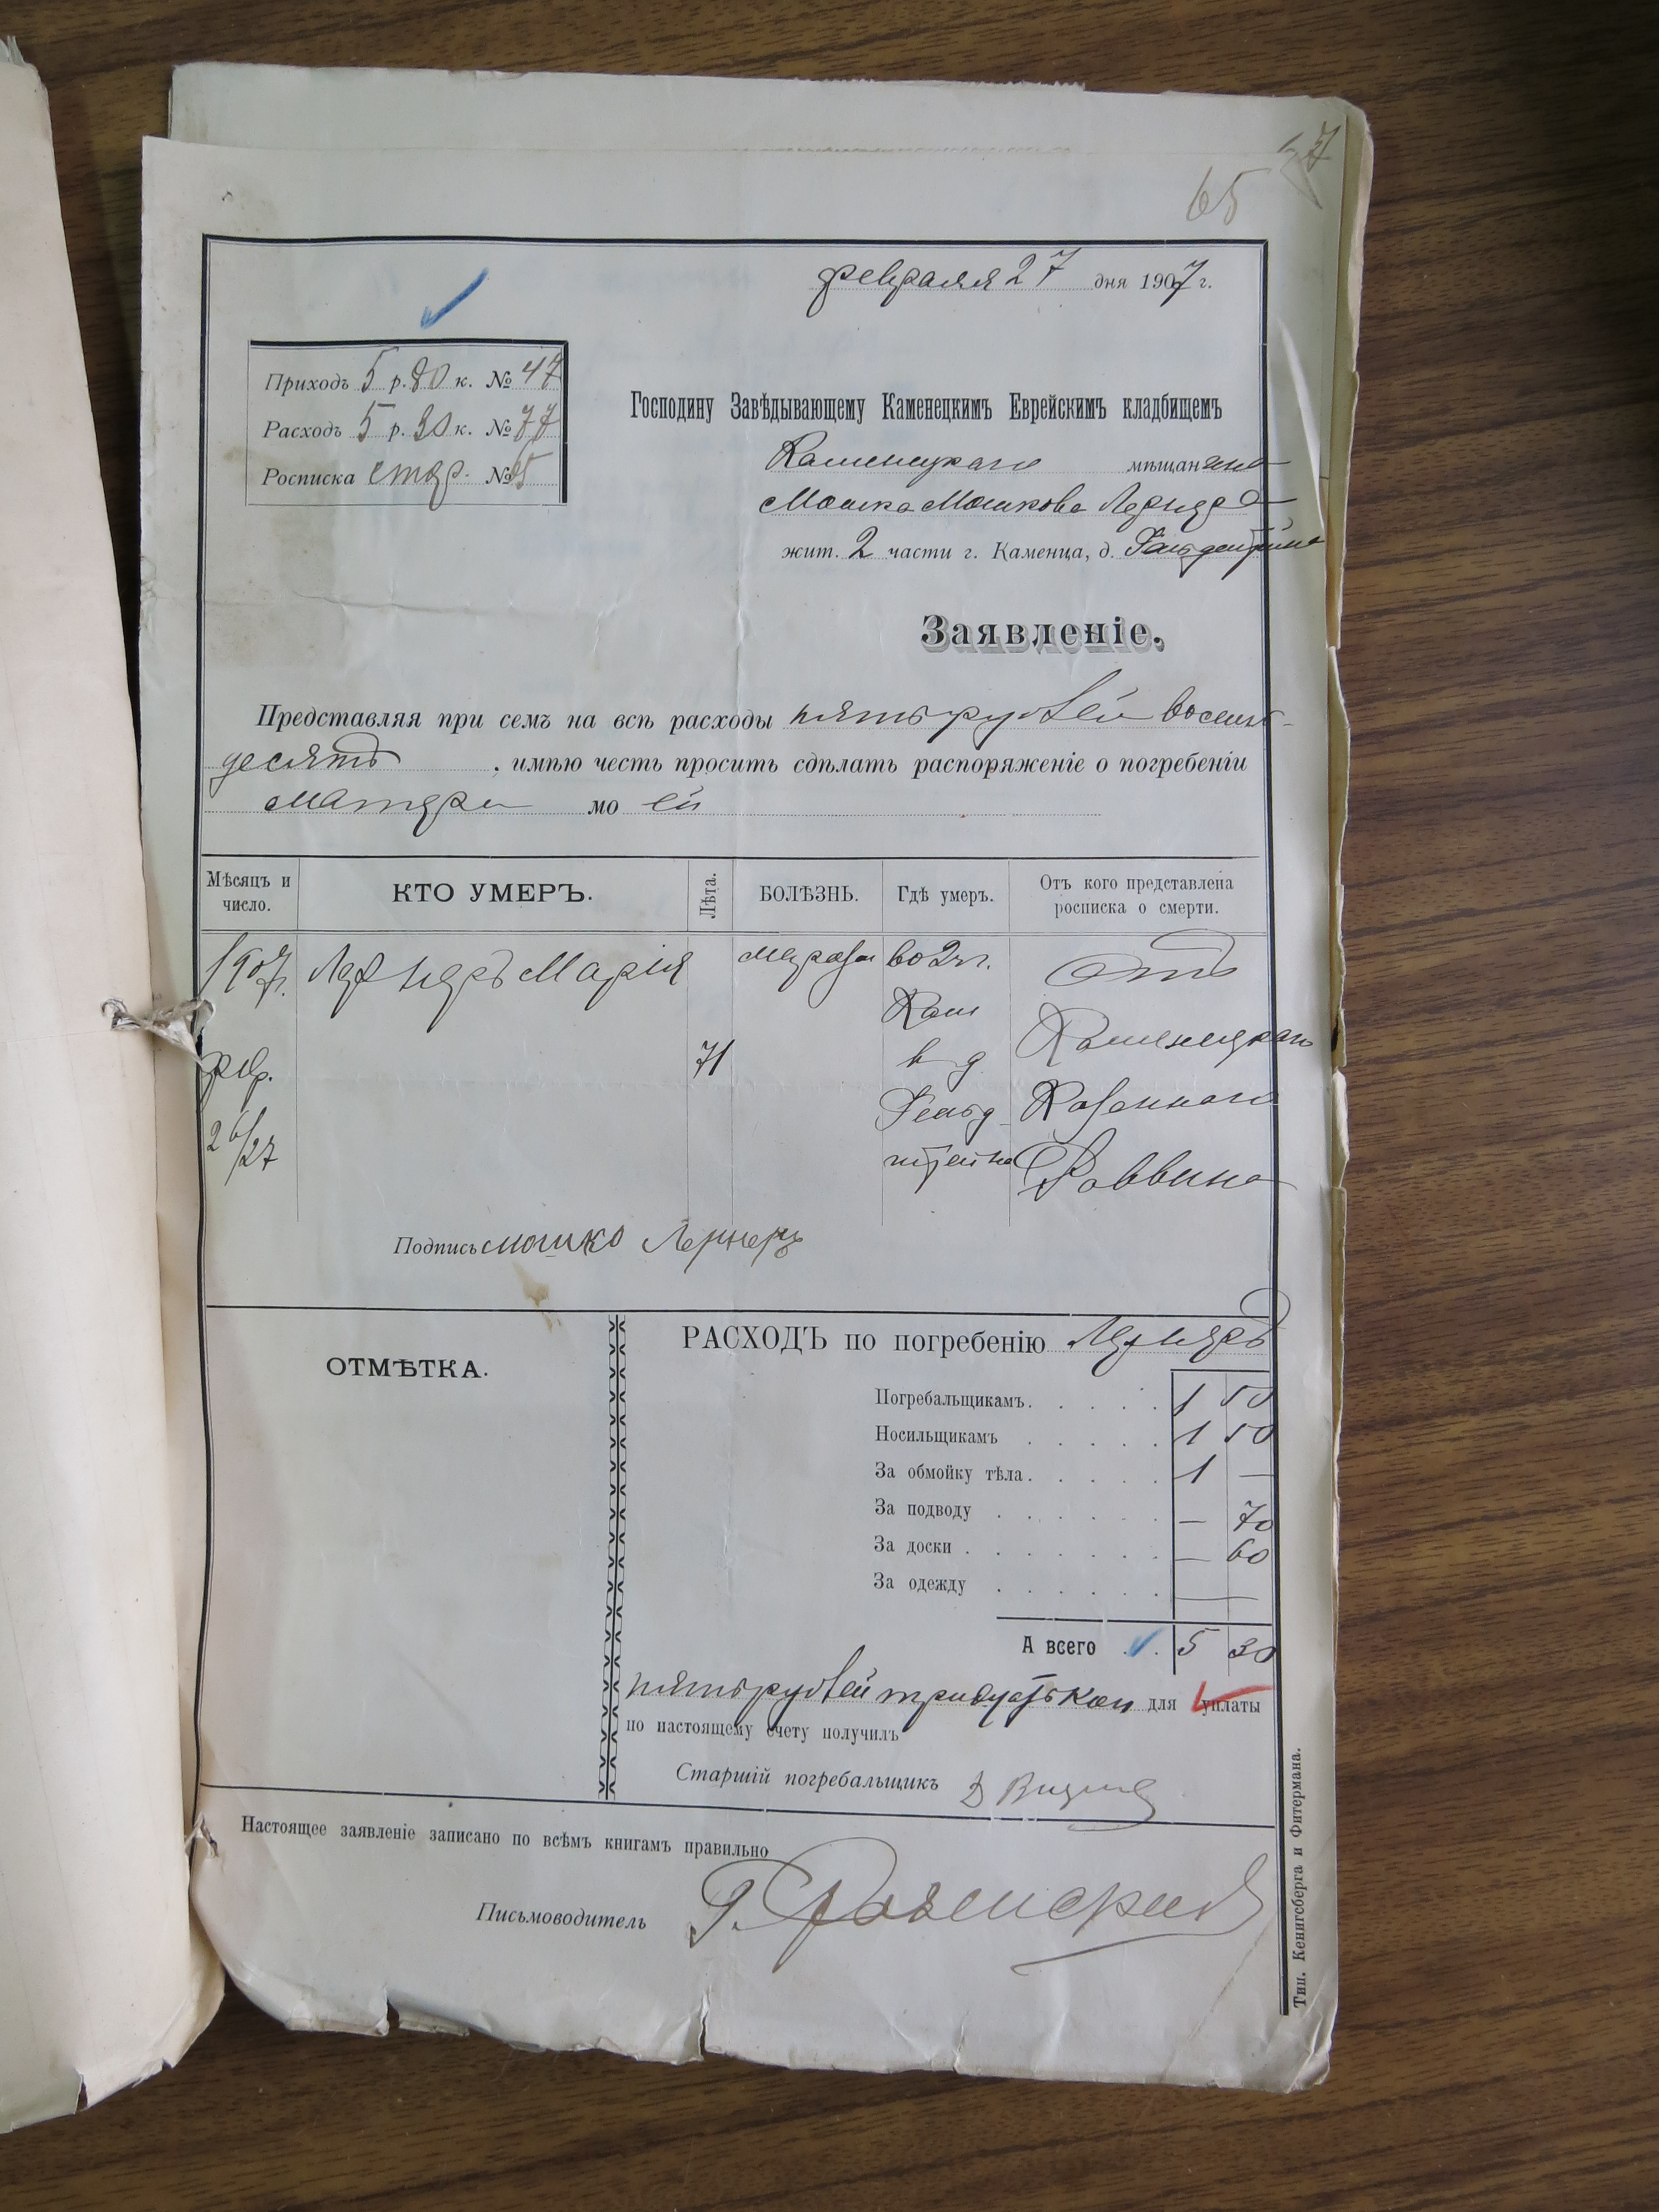 65
февраля 27 дня 1907 г.
Приходъ 5 р. 80 к. № 47
Расходъ 5 р. 30 к. № 77
Росписка стар. № 65
Господину Завѣдывающему Каменецкимъ Еврейскимъ кладбищемъ
Каменецкаго мѣщанина
Мошка Мошкова Лернера
жит. 2 части г. Каменца, д. Гольденштейна
Заявленіе.
Представляя при семъ на всѣ расходы пять рублей восемь-
десятъ , имѣю честь просить сдѣлать распоряженіе о погребеніи
матери моей
Мѣсяцъ и число. КТО УМЕРЪ. Лѣта. БОЛѢЗНЬ. Гдѣ умеръ. Отъ кого представлена росписка о смерти.
1907 г. Лернеръ Марія во 2 ч. отъ
Кам Каменецкаго
фев. 71 в д
Казеннаго
26/27
штейна Раввина
Подпись мошко Лернеръ
ОТМѢТКА.
РАСХОДЪ по погребенію Лернеръ
Погребальщикамъ. 1 50
Носильщикамъ 1 50
За обмойку тѣла. 1 —
За подводу — 70
За доски — 60
За одежду — —
А всего 5 30
пять рублей тридцать коп для уплаты
по настоящему счету получилъ
Старшій погребальщикъ
Настоящее заявленіе записано по всѣмъ книгамъ правильно
Письмоводитель
Тип. Кенигсберга и Фитермана.